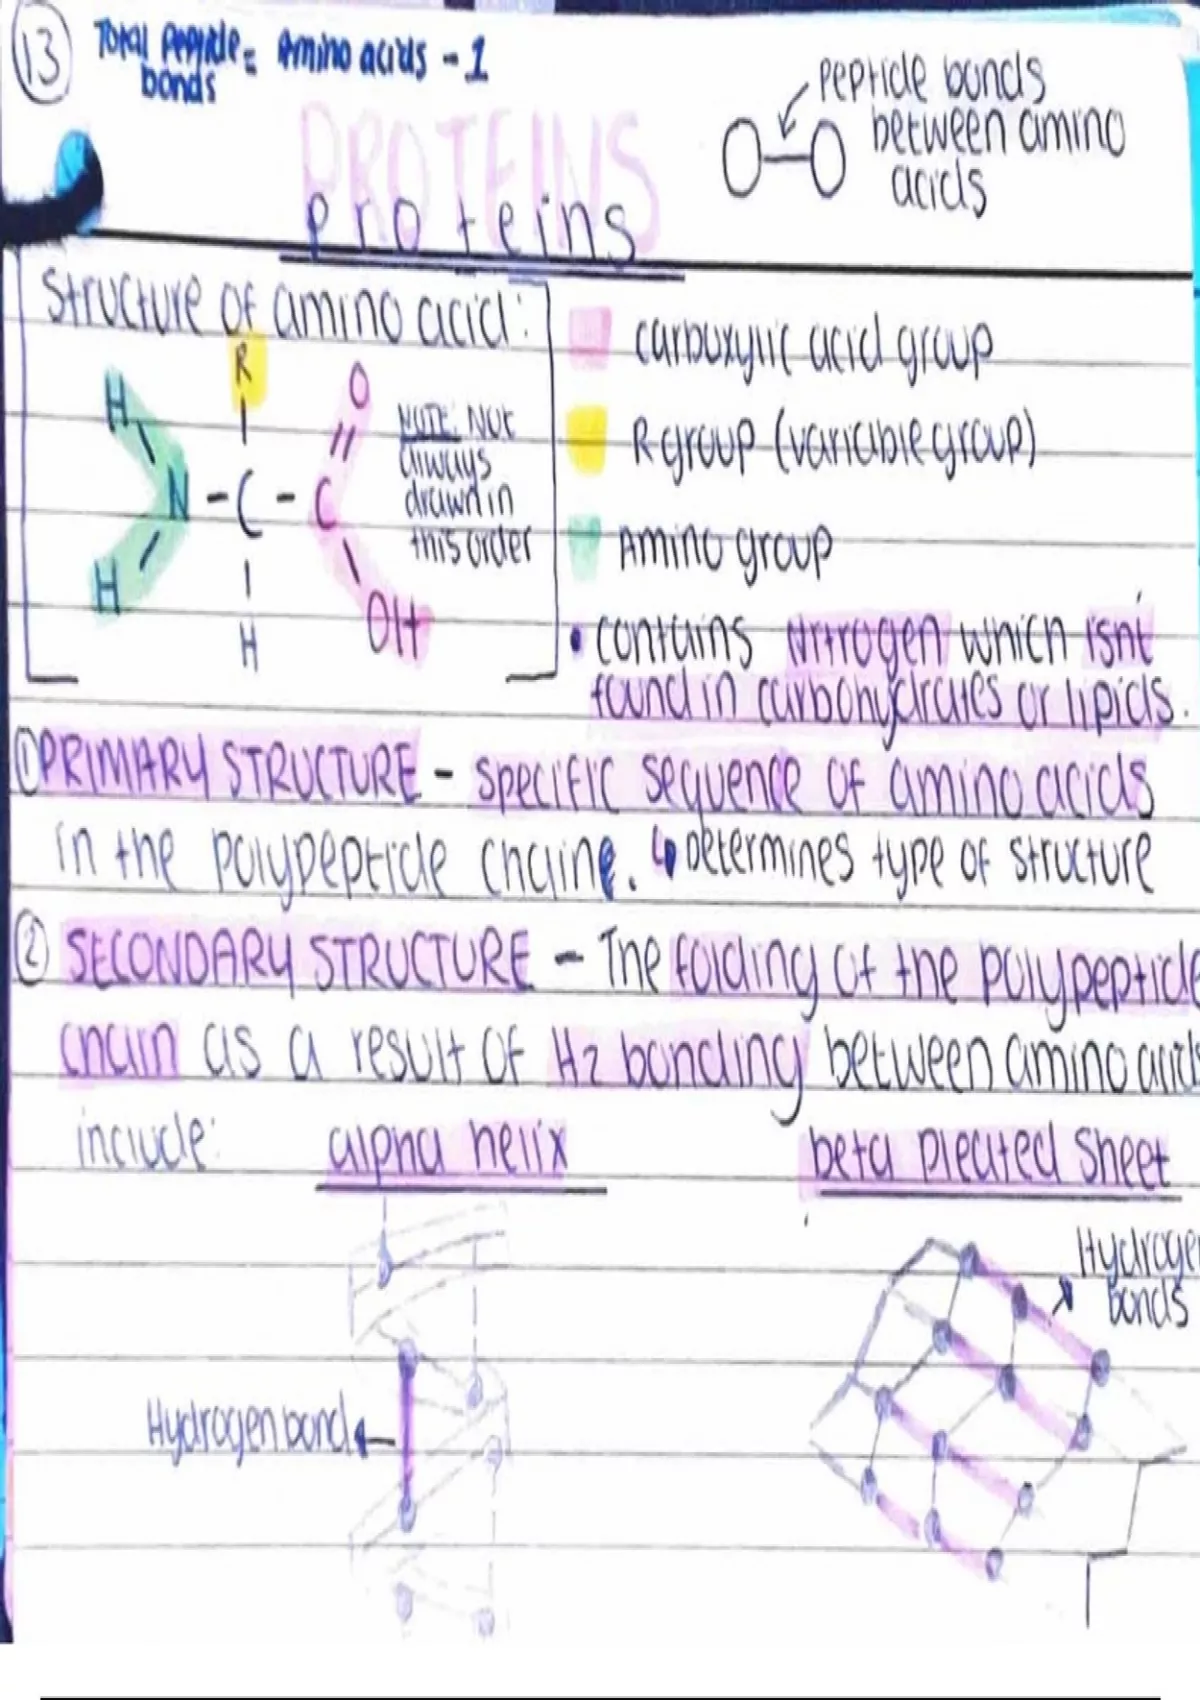 13
Total peptide = Amino acids - 1
bonds
peptide bonds
between amino
acids
PROTEINS
Proteins
Structure of amino acid:
carboxylic acid group
R group (variable group)
Amino group
R
H
O
N - C - C
H
OH
H
NOTE: Not
always
drawn in
this order
• contains Nitrogen which isnt
found in carbohydrates or lipids.
① PRIMARY STRUCTURE - specific sequence of amino acids
in the polypeptide chaine. ↳ Determines type of structure
② SECONDARY STRUCTURE - The folding of the polypeptide
chain as a result of H2 bonding between amino acids
include: alpha helix beta pleated sheet
Hydrogen
bonds
Hydrogen bond